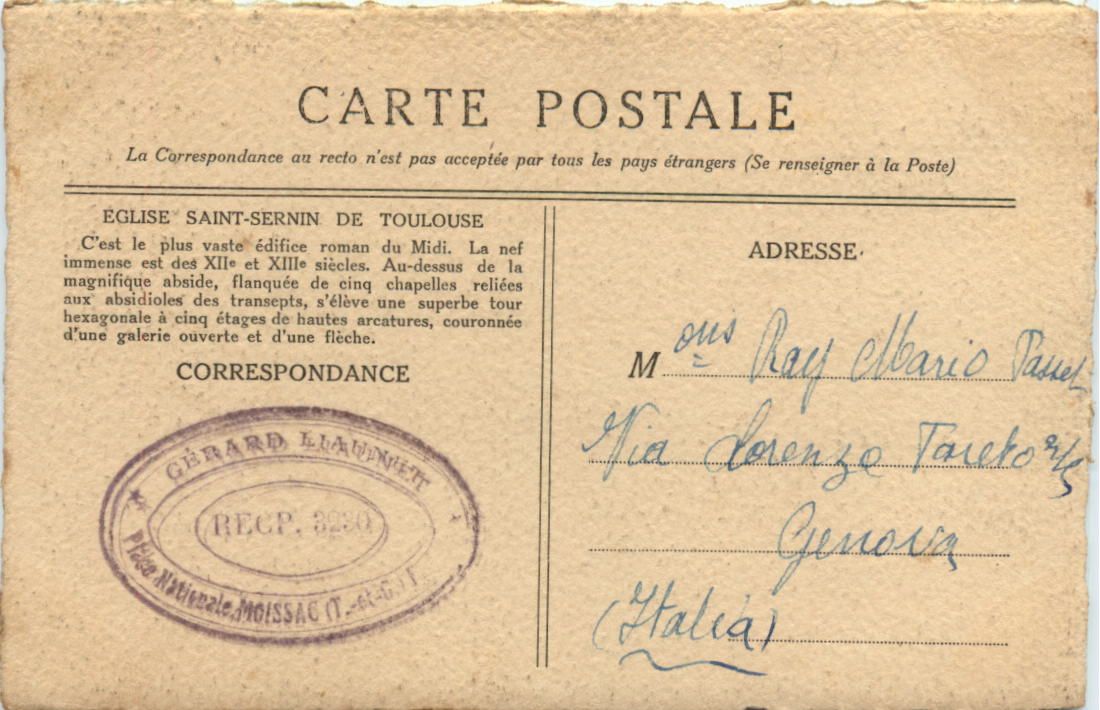 CARTE POSTALE
La Correspondance au recto n'est pas acceptée par tous les pays étrangers (Se renseigner à la Poste)
EGLISE SAINT-SERNIN DE TOULOUSE
C'est le plus vaste édifice roman du Midi. La nef
immense est des XIIe et XIIIe siècles. Au-dessus de la
magnifique abside, flanquée de cinq chapelles reliées
aux absidioles des transepts, s'élève une superbe tour
hexagonale à cinq étages de hautes arcatures, couronnée
d'une galerie ouverte et d'une flèche.
CORRESPONDANCE
GÉRARD
RECP. 3230
Place Nationale, MOISSAC (T.-et-G.)
ADRESSE
Mons Ray Mario
Via Lorenzo
Genova
(Italia)